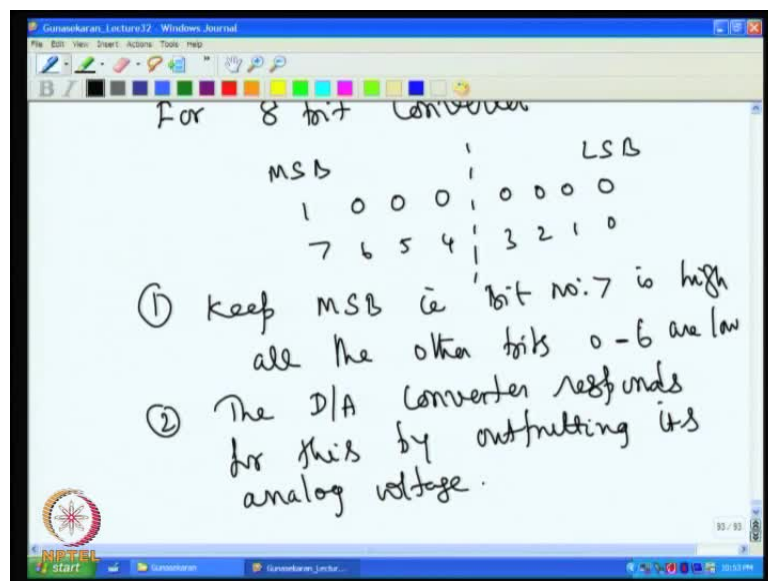 Gunasekaran_Lecture32 - Windows Journal
File Edit View Insert Actions Tools Help
For 8 bit Converter
MSB LSB
1 0 0 0 0 0 0 0
7 6 5 4 3 2 1 0
① Keep MSB ie bit no:7 is high
all the other bits 0-6 are low
② The D/A Converter responds
for this by outputting its
analog voltage.
93 / 93
NPTEL
start Gunasekaran Gunasekaran_Lectur... 10:53 PM